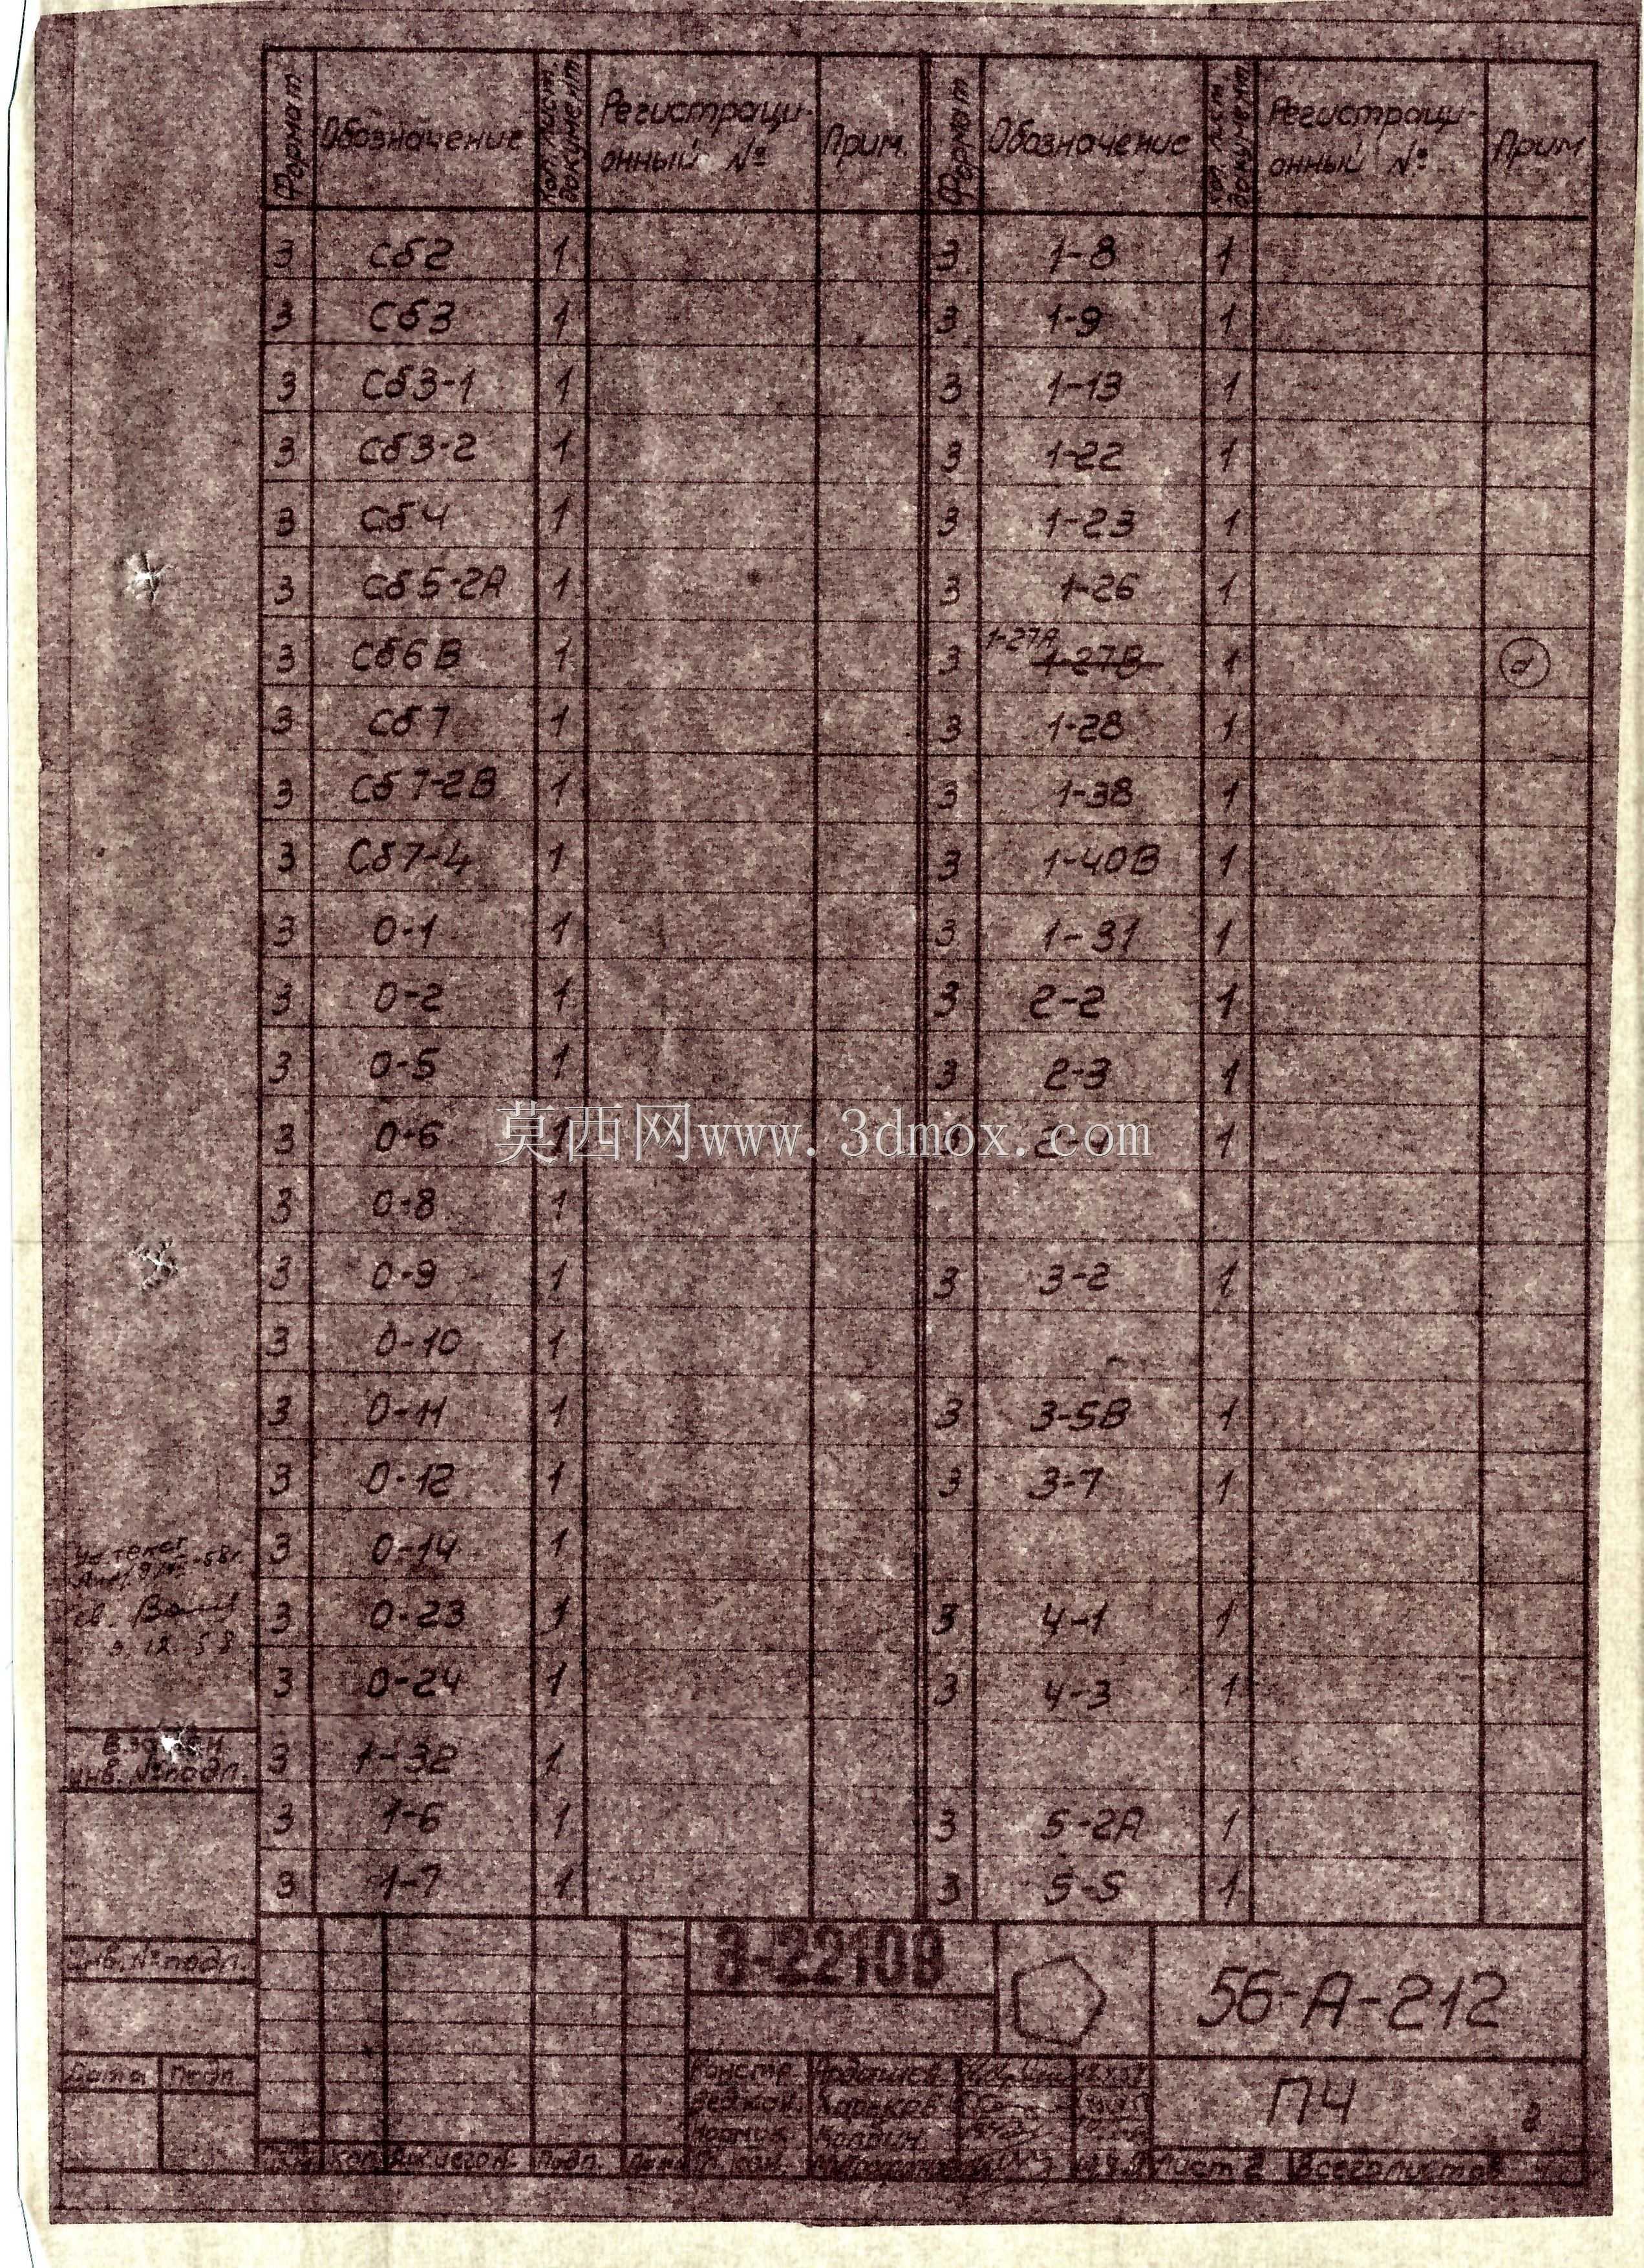 Формат Обозначение Кол. лист. документ Регистраци-онный № Прим. Формат Обозначение Кол. лист документ Регистраци-онный № Прим
3 Сб2 1 3 1-8 1
3 Сб3 1 3 1-9 1
3 Сб3-1 1 3 1-13 1
3 Сб3-2 1 3 1-22 1
3 Сб4 1 3 1-23 1
3 Сб5-2А 1 3 1-26 1
3 Сб6В 1 3 1-27А 1-27В 1 d
3 Сб7 1 3 1-28 1
3 Сб7-2В 1 3 1-38 1
3 Сб7-4 1 3 1-40В 1
3 0-1 1 3 1-31 1
3 0-2 1 3 2-2 1
3 0-5 1 3 2-3 1
3 0-6 1 1
莫西网www.3dmox.com
3 0-8 1
3 0-9 1 3 3-2 1
3 0-10 1
3 0-11 1 3 3-5В 1
3 0-12 1 3 3-7 1
3 0-14 1
3 0-23 1 3 4-1 1
3 0-24 1 3 4-3 1
3 1-32 1
3 1-6 1 3 5-2А 1
3 1-7 1 3 5-5 1
9.12.58
инв. № подл.
Инв. № подл.
Дата Подп.
3-22108
56-А-212
Констр.
Вед.кон.
ПЧ
2
Подп.
Лист 2 Всего листов